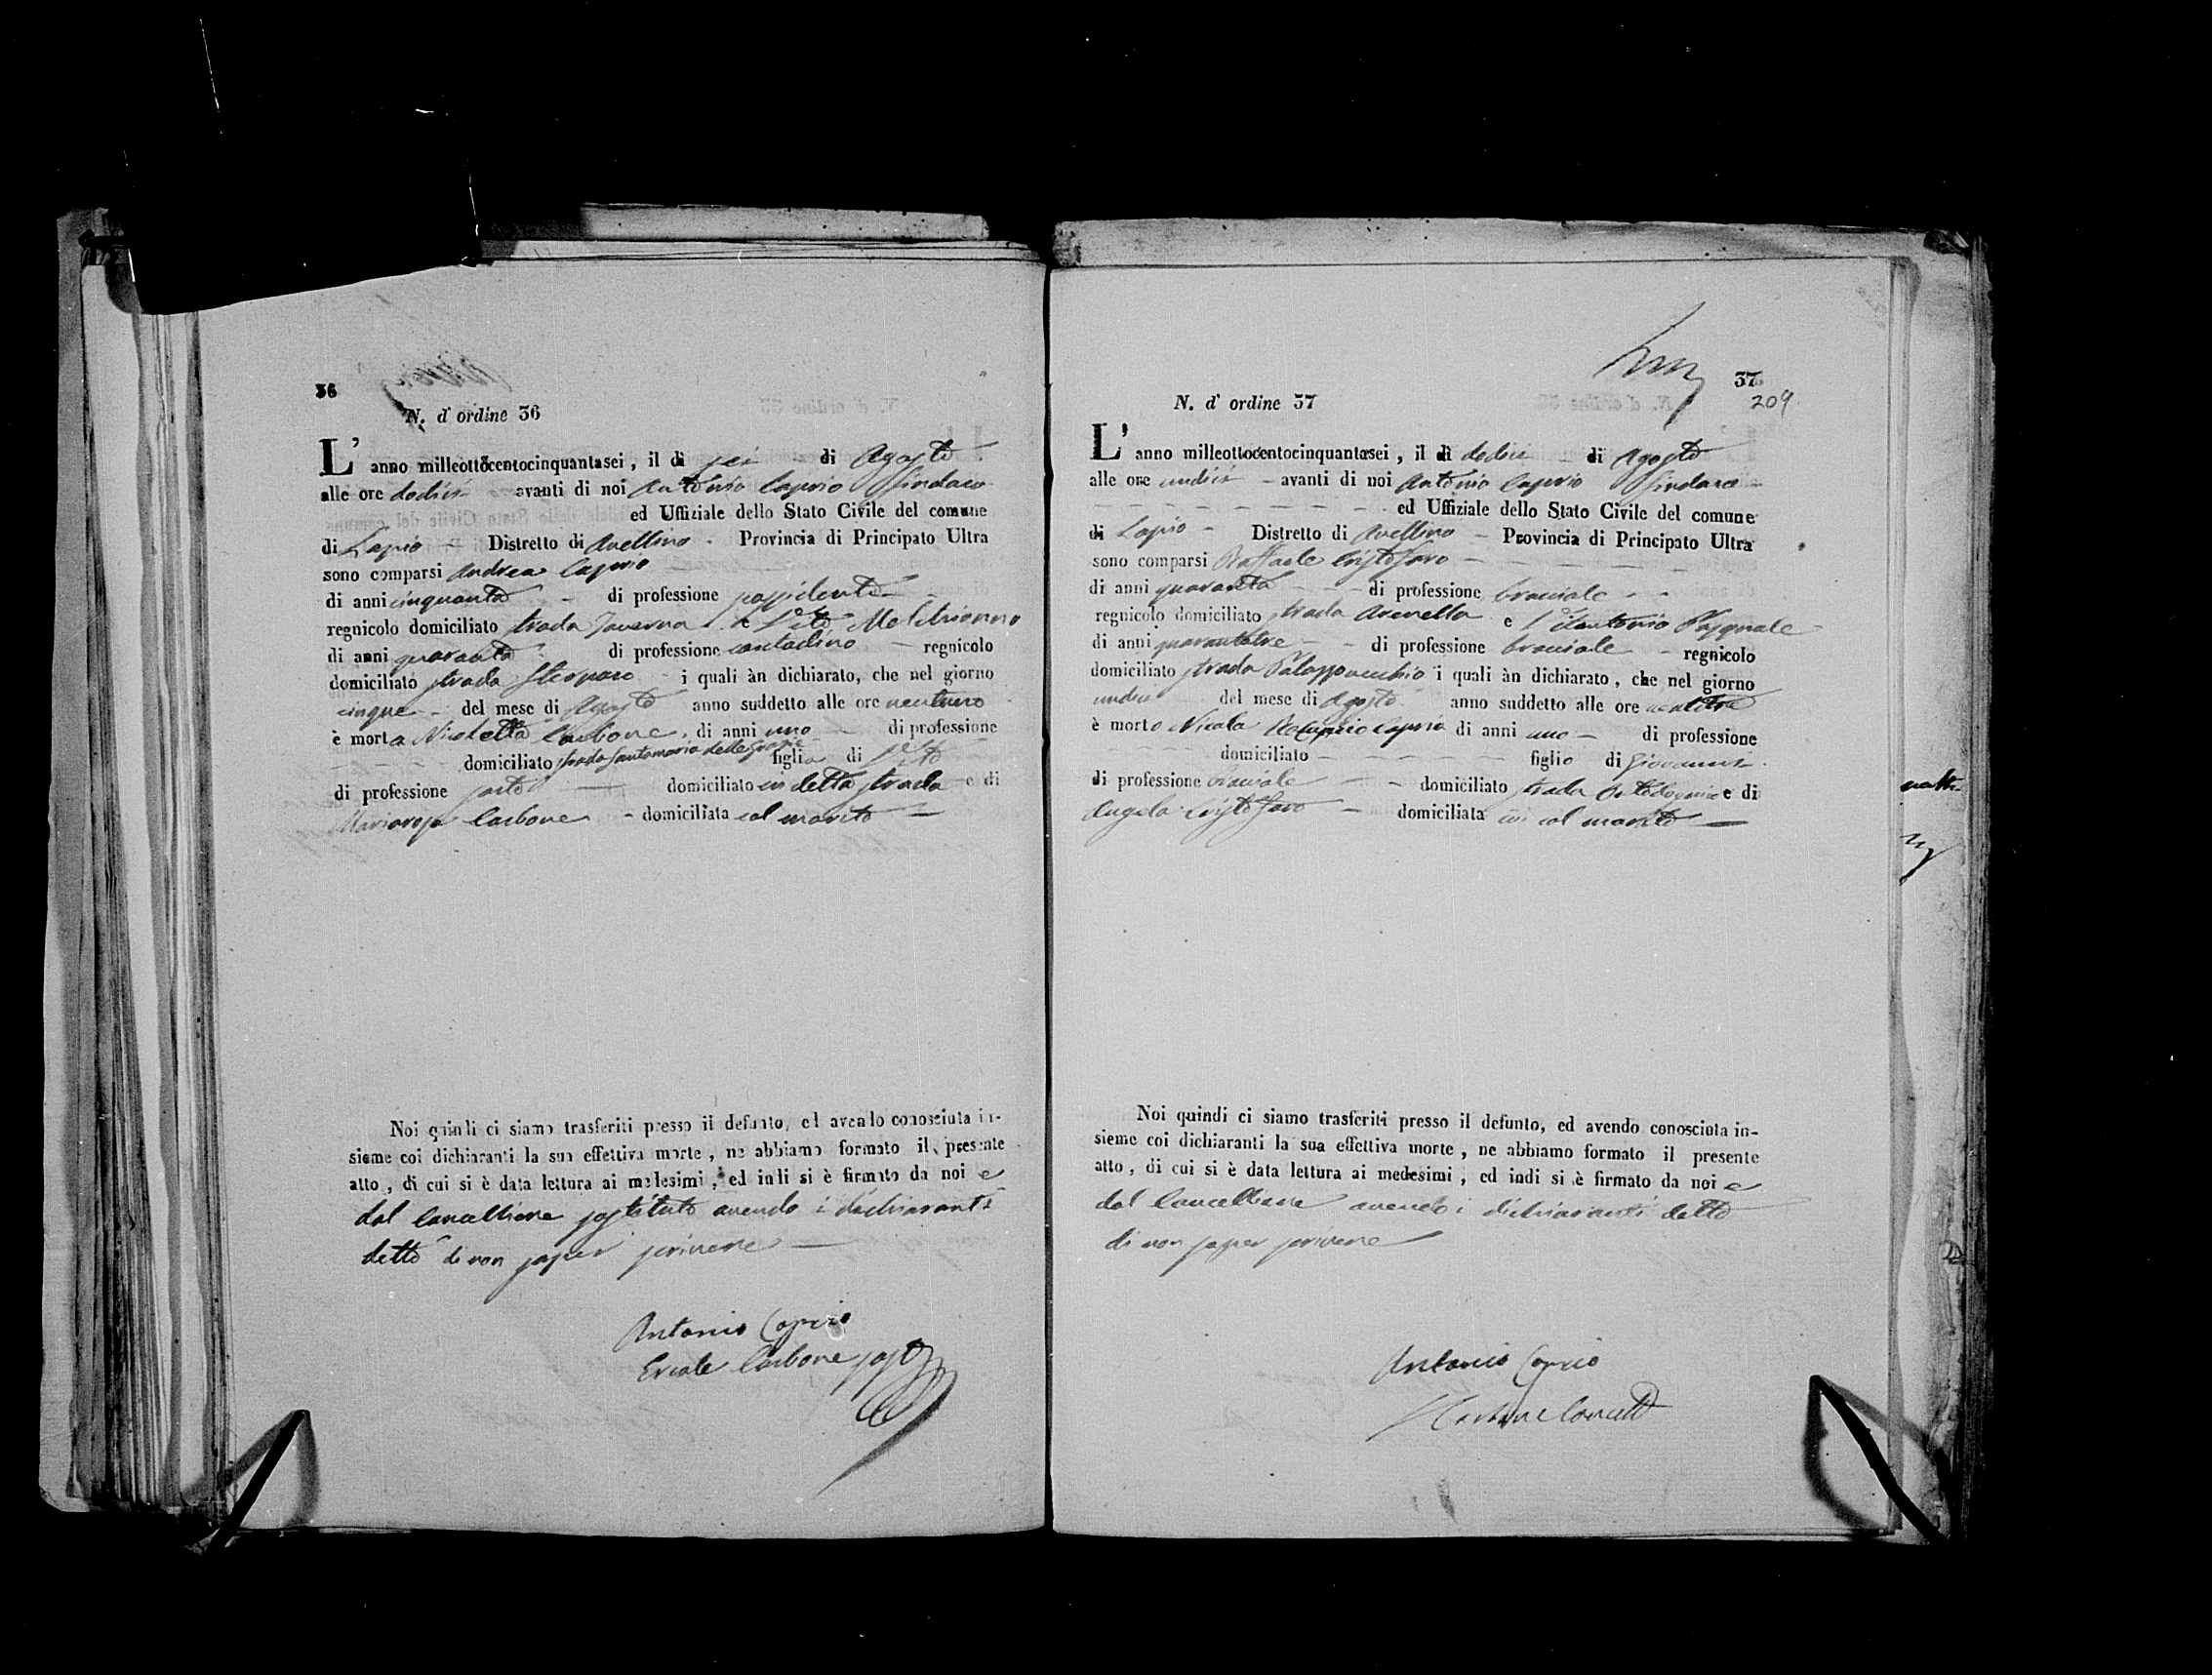 36
N. d' ordine 36
L' anno milleottocentocinquantasei, il dì sei di Agosto
alle ore dodici avanti di noi Antonio Caprio Sindaco
ed Uffiziale dello Stato Civile del comune
di Lapio Distretto di Avellino Provincia di Principato Ultra
sono comparsi Andrea Caprio
di anni cinquanta di professione possidente
regnicolo domiciliato strada Taverna e Vito Melchionno
di anni quaranta di professione contadino regnicolo
domiciliato strada i quali àn dichiarato, che nel giorno
cinque del mese di Agosto anno suddetto alle ore ventuno
è morta Nicoletta Carbone, di anni uno di professione
domiciliato strada Santamaria delle Grazie figlia di Vito
di professione sarto domiciliato in detta strada e di
Mariarosa Carbone domiciliata col marito
Noi quindi ci siamo trasferiti presso il defunto, ed avendo conosciuta in-
sieme coi dichiaranti la sua effettiva morte, ne abbiamo formato il presente
atto, di cui si è data lettura ai medesimi, ed indi si è firmato da noi e
dal Cancelliere sostituto avendo i dichiaranti
detto di non saper scrivere
Antonio Caprio
Ercole Carbone sost
37
209
N. d' ordine 37
L' anno milleottocentocinquantasei, il dì dodici di Agosto
alle ore undici avanti di noi Antonio Caprio Sindaco
ed Uffiziale dello Stato Civile del comune
di Lapio Distretto di Avellino Provincia di Principato Ultra
sono comparsi Raffaele Cristofaro
di anni quaranta di professione bracciale
regnicolo domiciliato strada Arenella e Vitantonio Pasquale
di anni quarantatre di professione bracciale regnicolo
domiciliato strada Palazzovecchio i quali àn dichiarato, che nel giorno
undici del mese di Agosto anno suddetto alle ore ventitre
è morto Nicola Caprio di anni uno di professione
domiciliato figlio di Giovanni
di professione bracciale domiciliato strada e di
Angela Cristofaro domiciliata col marito
Noi quindi ci siamo trasferiti presso il defunto, ed avendo conosciuta in-
sieme coi dichiaranti la sua effettiva morte, ne abbiamo formato il presente
atto, di cui si è data lettura ai medesimi, ed indi si è firmato da noi e
dal Cancelliere avendo i dichiaranti detto
di non saper scrivere
Antonio Caprio
Carbone